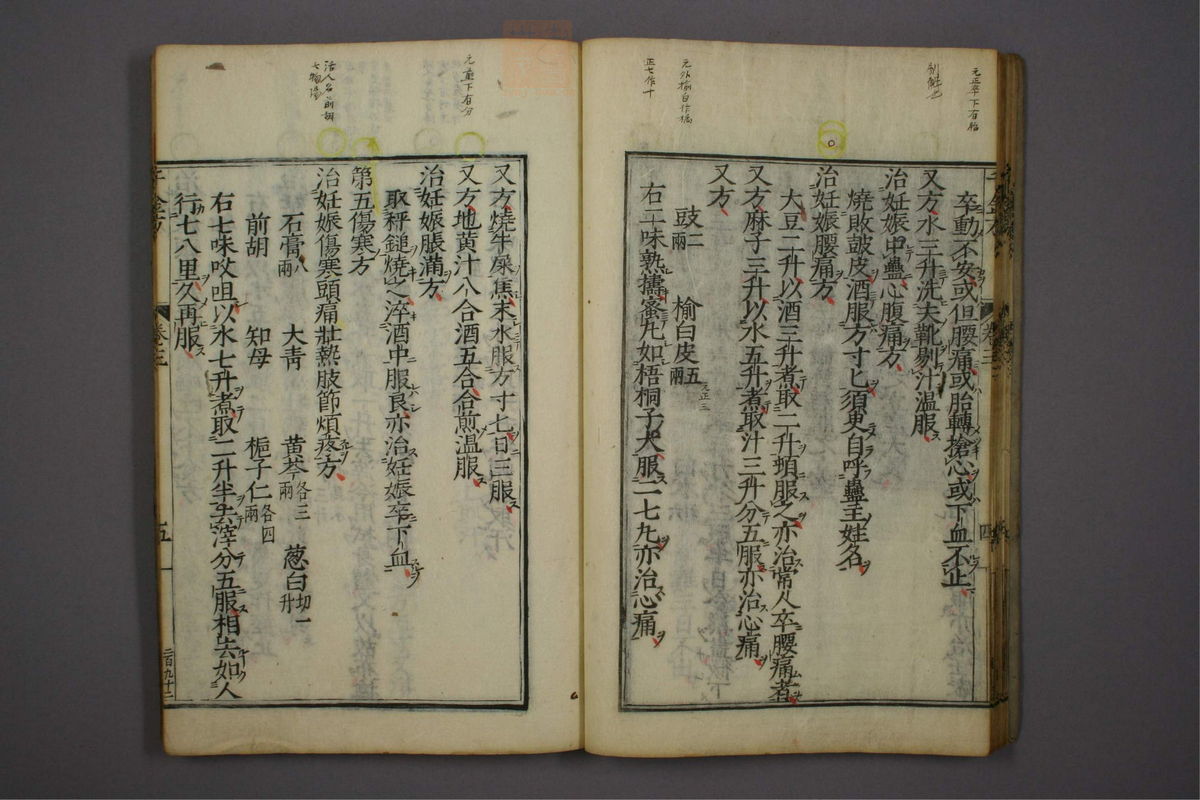 元正卒下有胎
別解也
元外榆白作橘
正七作十
卒動不安或但腰痛或胎轉搶心或下血不止
又方水三升洗夫靴剔汁溫服
治妊娠中蠱心腹痛方
燒敗皷皮酒服方寸匕須臾自呼蠱主姓名
治妊娠腰痛方
大豆二升以酒三升煮取二升頓服之亦治常人卒腰痛者
又方麻子三升以水五升煮取汁三升分五服亦治心痛
又方
豉二兩 榆白皮五兩 元正三
右二味熟擣蜜丸如梧桐子大服二七丸亦治心痛
卷三
四
元並下有分
活人名前胡
七物湯
又方燒牛屎焦末水服方寸匕日三服
又方地黃汁八合酒五合合煎溫服
治妊娠脹滿方
取秤鎚燒之淬酒中服良亦治妊娠卒下血
第五傷寒方
治妊娠傷寒頭痛壯熱肢節煩疼方
石膏八兩 大青 黃芩各三兩 葱白切一升
前胡 知母 梔子仁各四兩
右七味㕮咀以水七升煮取二升半去滓分五服相去如人
行七八里久再服
千金方
卷三
五
二百九十二